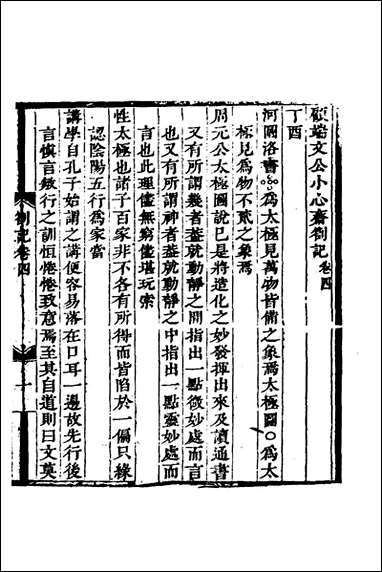 顧端文公小心齋劄記 卷四
丁酉
河圖洛書○○○爲太極見萬物皆備之象焉太極圖○爲太
極見爲物不貳之象焉
周元公太極圖說已是將造化之妙發揮出來及讀通書
又有所謂幾者葢就動靜之間指出一點微妙處而言
也又有所謂神者葢就動靜之中指出一點靈妙處而
言也此理儘無窮儘堪玩索
性太極也諸子百家非不各有所得而皆陷於一偏只緣
認陰陽五行爲家當
講學自孔子始謂之講便容易落在口耳一邊故先行後
言愼言敏行之訓恒惓惓致意焉至其自道則曰文莫
劄記卷四
一